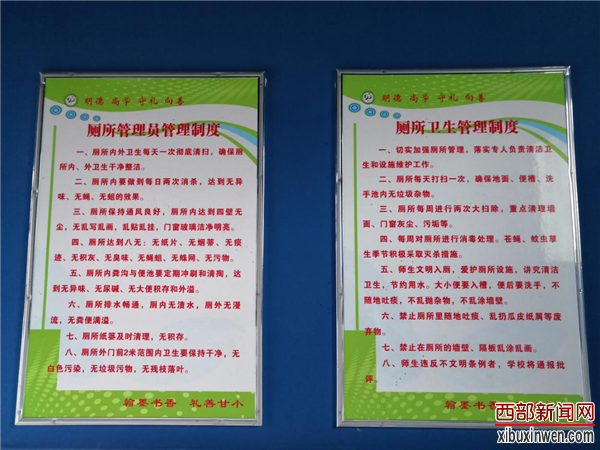 明德 尚学 守礼 向善
厕所管理员管理制度
一、厕所内外卫生每天一次彻底清扫，确保厕
所内、外卫生干净整洁。
二、厕所内要做到每日两次消杀，达到无异
味、无蝇、无蛆的效果。
三、厕所保持通风良好，厕所内达到四壁无
尘，无乱写乱画，乱贴乱挂，门窗玻璃洁净明亮。
四、厕所达到八无：无纸片、无烟蒂、无痰
迹、无积灰、无臭味、无蝇蛆、无蛛网、无污物。
五、厕所内粪沟与便池要定期冲刷和清掏，达
到无异味、无尿碱、无大便积存和外溢。
六、厕所排水畅通，厕内无渍水，厕外无漫
流，无粪便满溢。
七、厕所纸篓及时清理，无积存。
八、厕所外门前2米范围内卫生要保持干净，无
白色污染，无垃圾污物，无残枝落叶。
翰墨书香 礼善甘小
明德 尚学 守礼 向善
厕所卫生管理制度
一、切实加强厕所管理，落实专人负责清洁卫
生和设施维护工作。
二、厕所每天打扫一次，确保地面、便槽、洗
手池内无垃圾杂物。
三、厕所每周进行两次大扫除，重点清理墙
面、门窗灰尘、污垢等。
四、每周对厕所进行消毒处理。苍蝇、蚊虫孳
生季节积极采取灭杀措施。
五、师生文明入厕，爱护厕所设施，讲究清洁
卫生，节约用水。大小便要入槽，便后要洗手，不
随地吐痰，不乱抛杂物，不乱涂墙壁。
六、禁止厕所里随地吐痰、乱扔瓜皮纸屑等废
弃物。
七、禁止在厕所的墙壁、隔板乱涂乱画。
八、师生违反不文明条例者，学校将通报批
评。
翰墨书香
西部新闻网
xibuxinwen.com